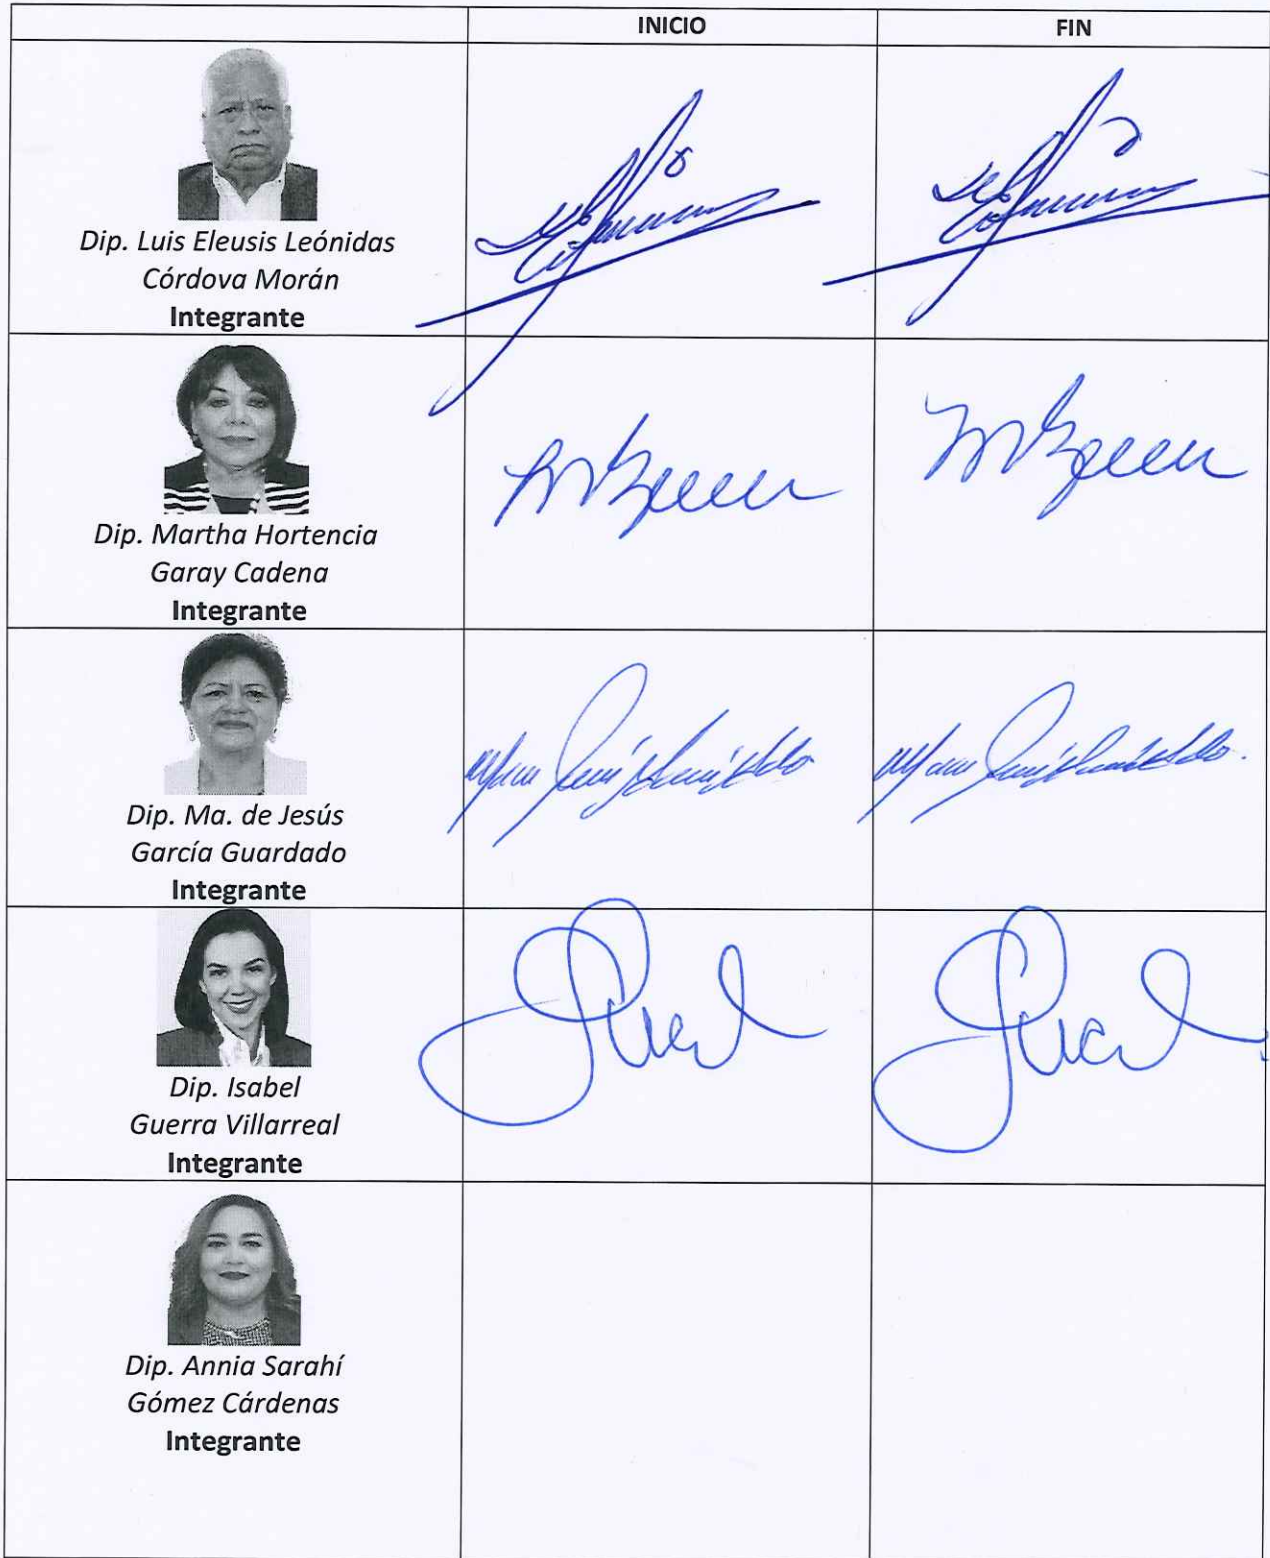 INICIO FIN
Dip. Luis Eleusis Leónidas
Córdova Morán
Integrante
Dip. Martha Hortencia
Garay Cadena
Integrante
Dip. Ma. de Jesús
García Guardado
Integrante
Dip. Isabel
Guerra Villarreal
Integrante
Dip. Annia Sarahí
Gómez Cárdenas
Integrante